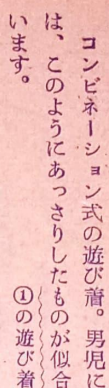 コンビネーション式の遊び着。男児に
は、このようにあっさりしたものが似合
います。
①の遊び着